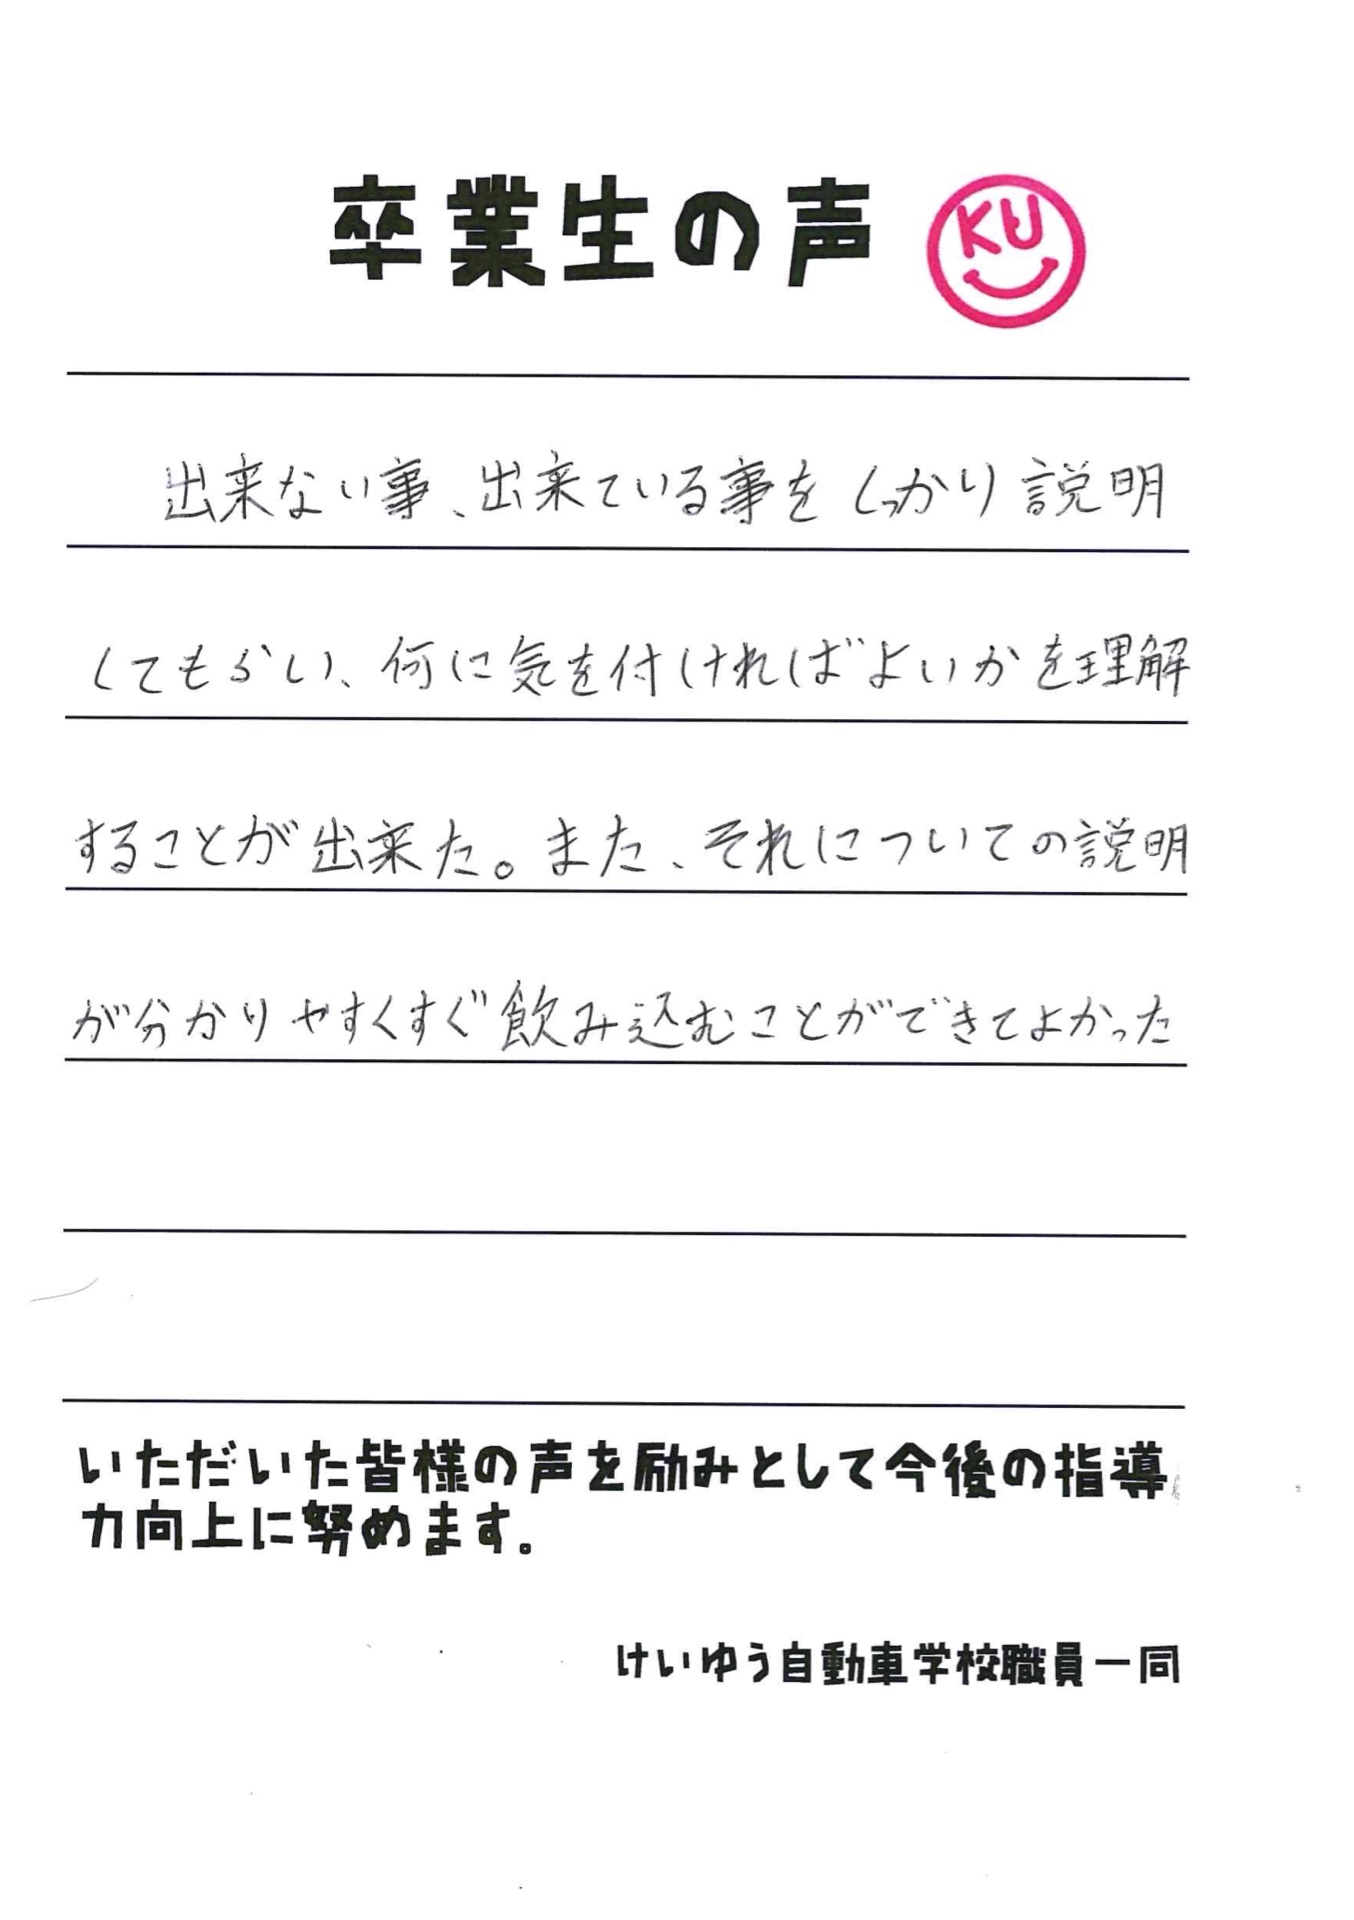 卒業生の声 KU
出来ない事、出来ている事をしっかり説明
してもらい、何に気を付ければよいかを理解
することが出来た。また、それについての説明
が分かりやすくすぐ飲み込むことができてよかった
いただいた皆様の声を励みとして今後の指導
力向上に努めます。
けいゆう自動車学校職員一同